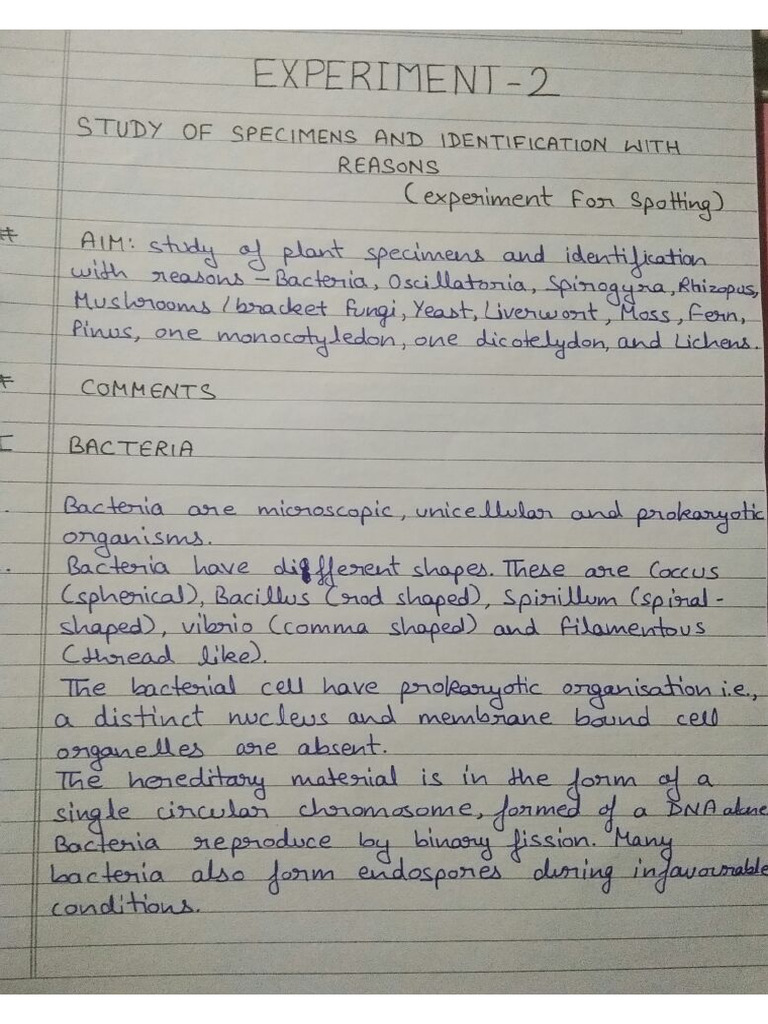 EXPERIMENT-2
STUDY OF SPECIMENS AND IDENTIFICATION WITH
REASONS
(experiment For Spotting)
# AIM: study of plant specimens and identification
with reasons - Bacteria, Oscillatoria, Spirogyra, Rhizopus,
Mushrooms / bracket fungi, Yeast, Liverwort, Moss, Fern,
Pinus, one monocotyledon, one dicotelydon, and Lichens.
COMMENTS
BACTERIA
Bacteria are microscopic, unicellular and prokaryotic
organisms.
Bacteria have different shapes. These are Coccus
(spherical), Bacillus (rod shaped), Spirillum (spiral-
shaped), vibrio (comma shaped) and filamentous
(thread like).
The bacterial cell have prokaryotic organisation i.e.,
a distinct nucleus and membrane bound cell
organelles are absent.
The hereditary material is in the form of a
single circular chromosome, formed of a DNA alone
Bacteria reproduce by binary fission. Many
bacteria also form endospores during infavourable
conditions.